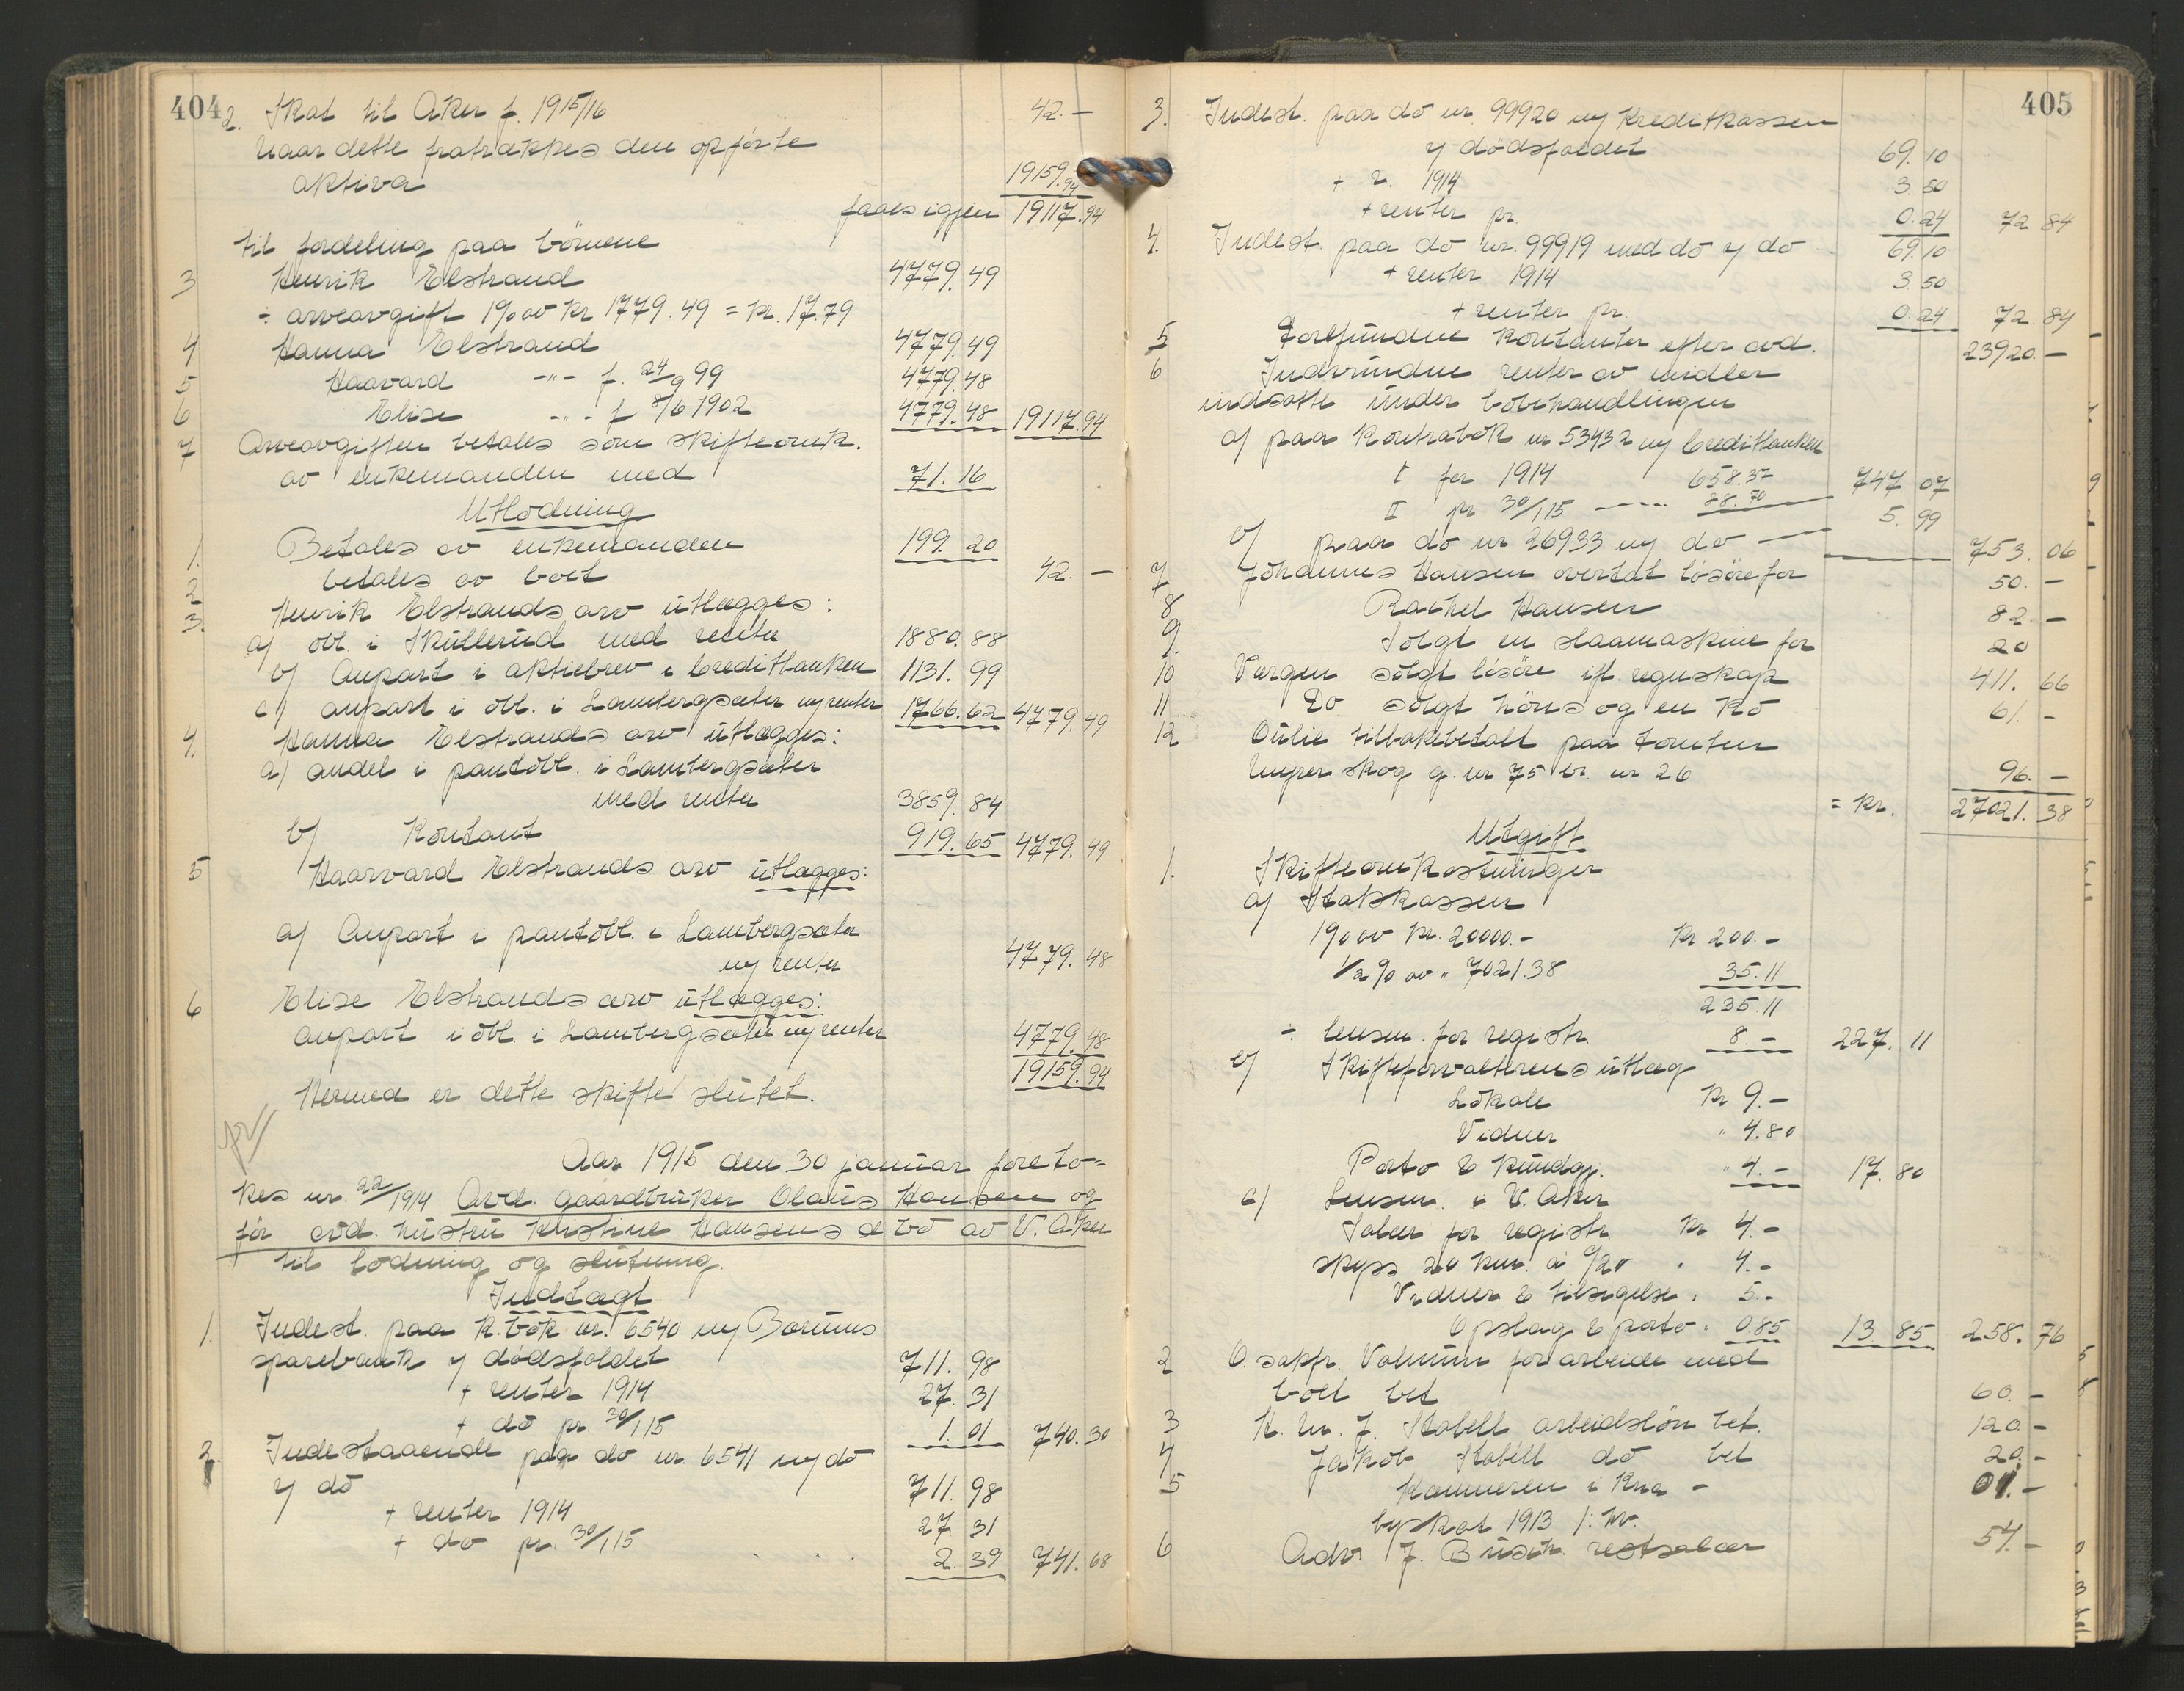 404
2. Skat til Aker f. 1915/16 42.—
Naar dette fratrækkes den opførte
aktiva 19159.94
faaes igjen 19117.94
til fordeling paa börnene
3 Henrik Elstrand 4779.49
÷ arveavgift 1% av kr 1779.49 = kr. 17.79
4 Hanna Elstrand 4779.49
5 Haavard -"- f. 24/9 99 4779.48
6 Elise -"- f 8/6 1902 4779.48 19117.94
7 Arveavgiften betales som skifteomk.
av enkemanden med 71.16
Utlodning
1. Betales av enkemanden 199.20
2 betales av boet 42.—
3. Henrik Elstrands arv utlægges:
a) obl. i Skullerud med renter 1880.88
b) Anpart i aktiebrev i Creditbanken 1131.99
c) anpart i obl. i Lambergsæter m/renter 1766.62 4779.49
4. Hanna Elstrands arv utlægges:
a) andel i pantobl. i Lambergsæter
med renter 3859.84
b) Kontant 919.65 4779.49
5 Haavard Elstrands arv utlægges:
a) Anpart i pantobl. i Lambergsæter
m/renter 4779.48
6 Elise Elstrands arv utlægges:
anpart i obl. i Lambergsæter m/renter 4779.48
19159.94
Hermed er dette skifte slutet.
Aar 1915 den 30 januar foreto-
kes nr. 22/1914 Avd. gaardbruker Olaus Hansen og
før avd. hustru Kristine Hansens d.bo av V. Aker
til lodning og slutning.
Indtægt
1. Indest. paa K.bok nr. 6540 m/Bærums
sparebank v/dödsfaldet 711.98
+ renter 1914 27.31
+ do pr. 30/1 15 1.01 740.30
2. Indestaaende paa do nr 6541 m/do
v/do 711.98
+ renter 1914 27 31
+ do pr. 30/1 15 2.39 741.68
405
3. Indest. paa do nr. 99920 m/Kreditkassen
v/dödsfaldet 69.10
+ r. 1914 3.50
+ renter pr 0.24 72 84
4. Indest. paa do nr. 99919 med do v/do 69.10
+ renter 1914 3 50
+ renter pr. 0.24 72.84
5 Forefundne kontanter efter avd. 23920.—
6 Indvundne renter av midler
indsatte under bobehandlingen
a) paa Kontrabok nr 53432 m/Creditbanken
I for 1914 658.37
II pr 30/1 15 —"— 88.70 747 07
b) paa do nr 26933 m/do — 5.99 753.06
7 Johannes Hansen overtat lösöre for 50.—
8 Rachel Hansen 82.—
9. Solgt en slaamaskine for 20
10 Værgen solgt lösöre ifl regnskap 411.66
11 Do solgt höns og en ko 61.—
12 Oulie tilbakebetalt paa tomten
Ungers skog g. nr 75 br. nr 26 96.—
= Kr. 27021.38
Utgift
1. Skifteomkostninger
a) Statskassen
1% av kr. 20000.— Kr 200.—
1/2% av " 7021.38 35.11
235.11
÷ lensm. for registr. 8— 227.11
b) Skifteforvalterens utlæg
Lokale Kr 9.—
Vidner " 4.80
Porto & kundgj. " 4.— 17.80
c) Lensm. i V. Aker
Salær for registr. Kr 4.—
skyss 20 km. à %20 " 4.—
Vidner & tilsigelse " 5.—
Opslag & porto " 0.85 13.85 258.76
2 O. sakfr. Vahrum for arbeide med
boet bet 60.—
3 H. Nr. 7. Stabell arbeidslön bet. 120.—
4 Jakob Stabell do bet 20.—
5 Kæmneren i Kra —
byskat 1913 1. kv.
6 Adv. J. Busch restsalær 54.—